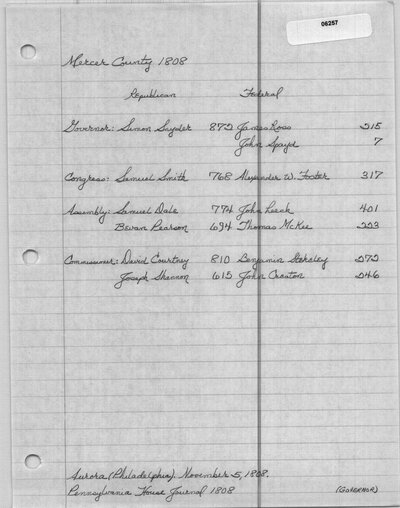 06257
Mercer County 1808
Republican Federal
Governor: Simon Snyder 872 James Ross 215
John Spayd 7
Congress: Samuel Smith 768 Alexander W. Foster 317
Assembly: Samuel Dale 774 John Leech 401
Bevan Pearson 694 Thomas McKee 223
Commissioner: David Courtney 810 Benjamin Stokeley 272
Joseph Shannon 615 John Croston 246
Aurora (Philadelphia). November 5, 1808.
Pennsylvania House Journal 1808 (GOVERNOR)